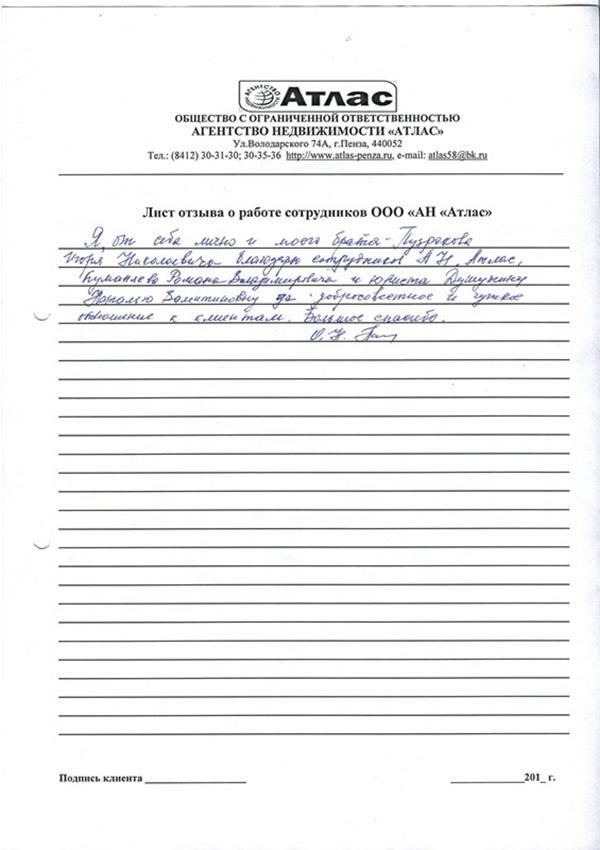 АГЕНТСТВО НЕДВИЖИМОСТИ
Атлас
ОБЩЕСТВО С ОГРАНИЧЕННОЙ ОТВЕТСТВЕННОСТЬЮ
АГЕНТСТВО НЕДВИЖИМОСТИ «АТЛАС»
Ул.Володарского 74А, г.Пенза, 440052
Тел.: (8412) 30-31-30; 30-35-36 http://www.atlas-penza.ru, e-mail: atlas58@bk.ru
Лист отзыва о работе сотрудников ООО «АН «Атлас»
Я, от себя лично и моего брата -
Игоря Николаевича благодарю сотрудников АН, Атлас,
Романа Владимировича и юриста
Наталью Валентиновну за добросовестное и чуткое
отношение к клиентам. Большое спасибо.
О. Н.
Подпись клиента ____________________ _______________201_ г.